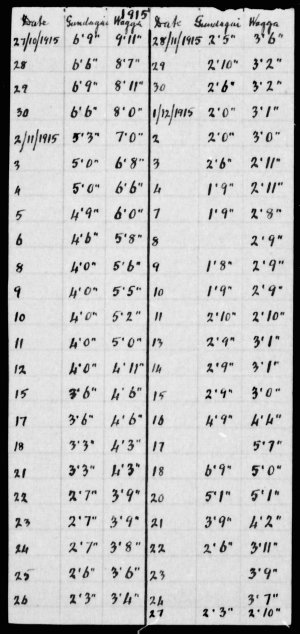 1915
Date Gundagai Wagga Date Gundagai Wagga
27/10/1915 6'9" 9'11" 28/11/1915 2'5" 3'6"
28 6'6" 8'7" 29 2'10" 3'2"
29 6'9" 8'11" 30 2'6" 3'2"
30 6'6" 8'0" 1/12/1915 2'0" 3'1"
2/11/1915 5'3" 7'0" 2 2'0" 3'0"
3 5'0" 6'8" 3 2'6" 2'11"
4 5'0" 6'6" 4 1'9" 2'11"
5 4'9" 6'0" 7 1'9" 2'8"
6 4'6" 5'8" 8 2'9"
8 4'0" 5'6" 9 1'8" 2'9"
9 4'0" 5'5" 10 1'9" 2'9"
10 4'0" 5'2" 11 2'10" 2'10"
11 4'0" 5'0" 13 2'9" 3'1"
12 4'0" 4'11" 14 2'9" 3'1"
15 3'6" 4'6" 15 2'9" 3'0"
17 3'6" 4'6" 16 4'9" 4'4"
18 3'3" 4'3" 17 5'7"
21 3'3" 4'3" 18 6'9" 5'0"
22 2'7" 3'9" 20 5'1" 5'1"
23 2'7" 3'9" 21 3'9" 4'2"
24 2'7" 3'8" 22 2'6" 3'11"
25 2'6" 3'6" 23 3'9"
26 2'3" 3'4" 24 3'7"
27 2'3" 2'10"